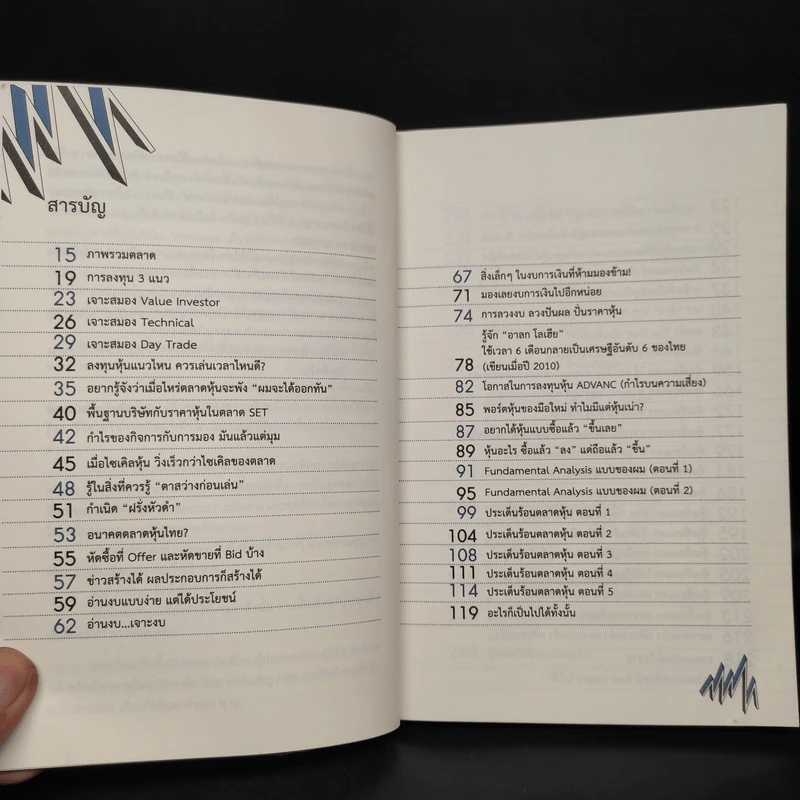 สารบัญ
15 ภาพรวมตลาด
19 การลงทุน 3 แนว
23 เจาะสมอง Value Investor
26 เจาะสมอง Technical
29 เจาะสมอง Day Trade
32 ลงทุนหุ้นแนวไหน ควรเล่นเวลาไหนดี?
35 อยากรู้จังว่าเมื่อไหร่ตลาดหุ้นจะพัง “ผมจะได้ออกทัน”
40 พื้นฐานบริษัทกับราคาหุ้นในตลาด SET
42 กำไรของกิจการกับการมอง มันแล้วแต่มุม
45 เมื่อไซเคิลหุ้น วิ่งเร็วกว่าไซเคิลของตลาด
48 รู้ในสิ่งที่ควรรู้ “ตาสว่างก่อนเล่น”
51 กำเนิด “ฝรั่งหัวดำ”
53 อนาคตตลาดหุ้นไทย?
55 หัดซื้อที่ Offer และหัดขายที่ Bid บ้าง
57 ข่าวสร้างได้ ผลประกอบการก็สร้างได้
59 อ่านงบแบบง่าย แต่ได้ประโยชน์
62 อ่านงบ...เจาะงบ
67 สิ่งเล็กๆ ในงบการเงินที่ห้ามมองข้าม!
71 มองเลยงบการเงินไปอีกหน่อย
74 การลวงงบ ลวงปันผล ปั่นราคาหุ้น
รู้จัก “อาลก โลเฮีย”
ใช้เวลา 6 เดือนกลายเป็นเศรษฐีอันดับ 6 ของไทย
78 (เขียนเมื่อปี 2010)
82 โอกาสในการลงทุนหุ้น ADVANC (กำไรบนความเสี่ยง)
85 พอร์ตหุ้นของมือใหม่ ทำไมมีแต่หุ้นเน่า?
87 อยากได้หุ้นแบบซื้อแล้ว “ขึ้นเลย”
89 หุ้นอะไร ซื้อแล้ว “ลง” แต่ถือแล้ว “ขึ้น”
91 Fundamental Analysis แบบของผม (ตอนที่ 1)
95 Fundamental Analysis แบบของผม (ตอนที่ 2)
99 ประเด็นร้อนตลาดหุ้น ตอนที่ 1
104 ประเด็นร้อนตลาดหุ้น ตอนที่ 2
108 ประเด็นร้อนตลาดหุ้น ตอนที่ 3
111 ประเด็นร้อนตลาดหุ้น ตอนที่ 4
114 ประเด็นร้อนตลาดหุ้น ตอนที่ 5
119 อะไรก็เป็นไปได้ทั้งนั้น